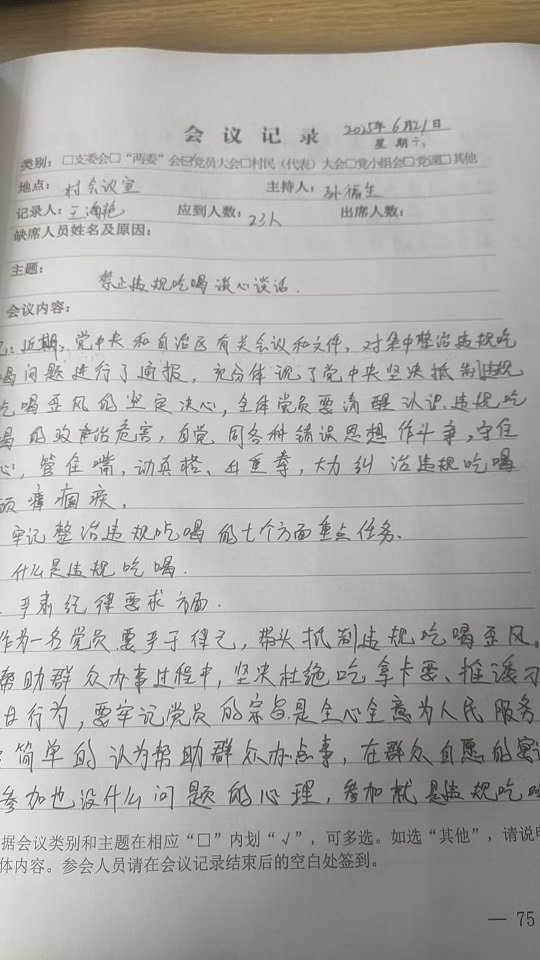 会议记录 2025年6月21日
星期六
类别：□支委会□“两委”会☑党员大会□村民（代表）大会□党小组会□党课□其他
地点：村会议室 主持人：孙福生
记录人：王海艳 应到人数：23人 出席人数：
缺席人员姓名及原因：
主题：
禁止违规吃喝谈心谈话.
会议内容：
：近期，党中央和自治区有关会议和文件，对集中整治违规吃
喝问题进行了通报，充分体现了党中央坚决抵制违规
吃喝歪风的坚定决心，全体党员要清醒认识违规吃
喝的政治危害，自觉同各种错误思想作斗争，守住
心，管住嘴，动真格、出重拳，大力纠治违规吃喝
顽瘴痼疾.
牢记整治违规吃喝的七个方面重点任务.
什么是违规吃喝.
严肃纪律要求方面.
作为一名党员要严于律己，带头抵制违规吃喝歪风。
帮助群众办事过程中，坚决杜绝吃拿卡要、推诿刁
行为，要牢记党员的宗旨是全心全意为人民服务
简单的认为帮助群众办点事，在群众自愿的宴
参加也没什么问题的心理，参加就是违规吃喝
据会议类别和主题在相应“□”内划“√”，可多选。如选“其他”，请说明
体内容。参会人员请在会议记录结束后的空白处签到。
— 75